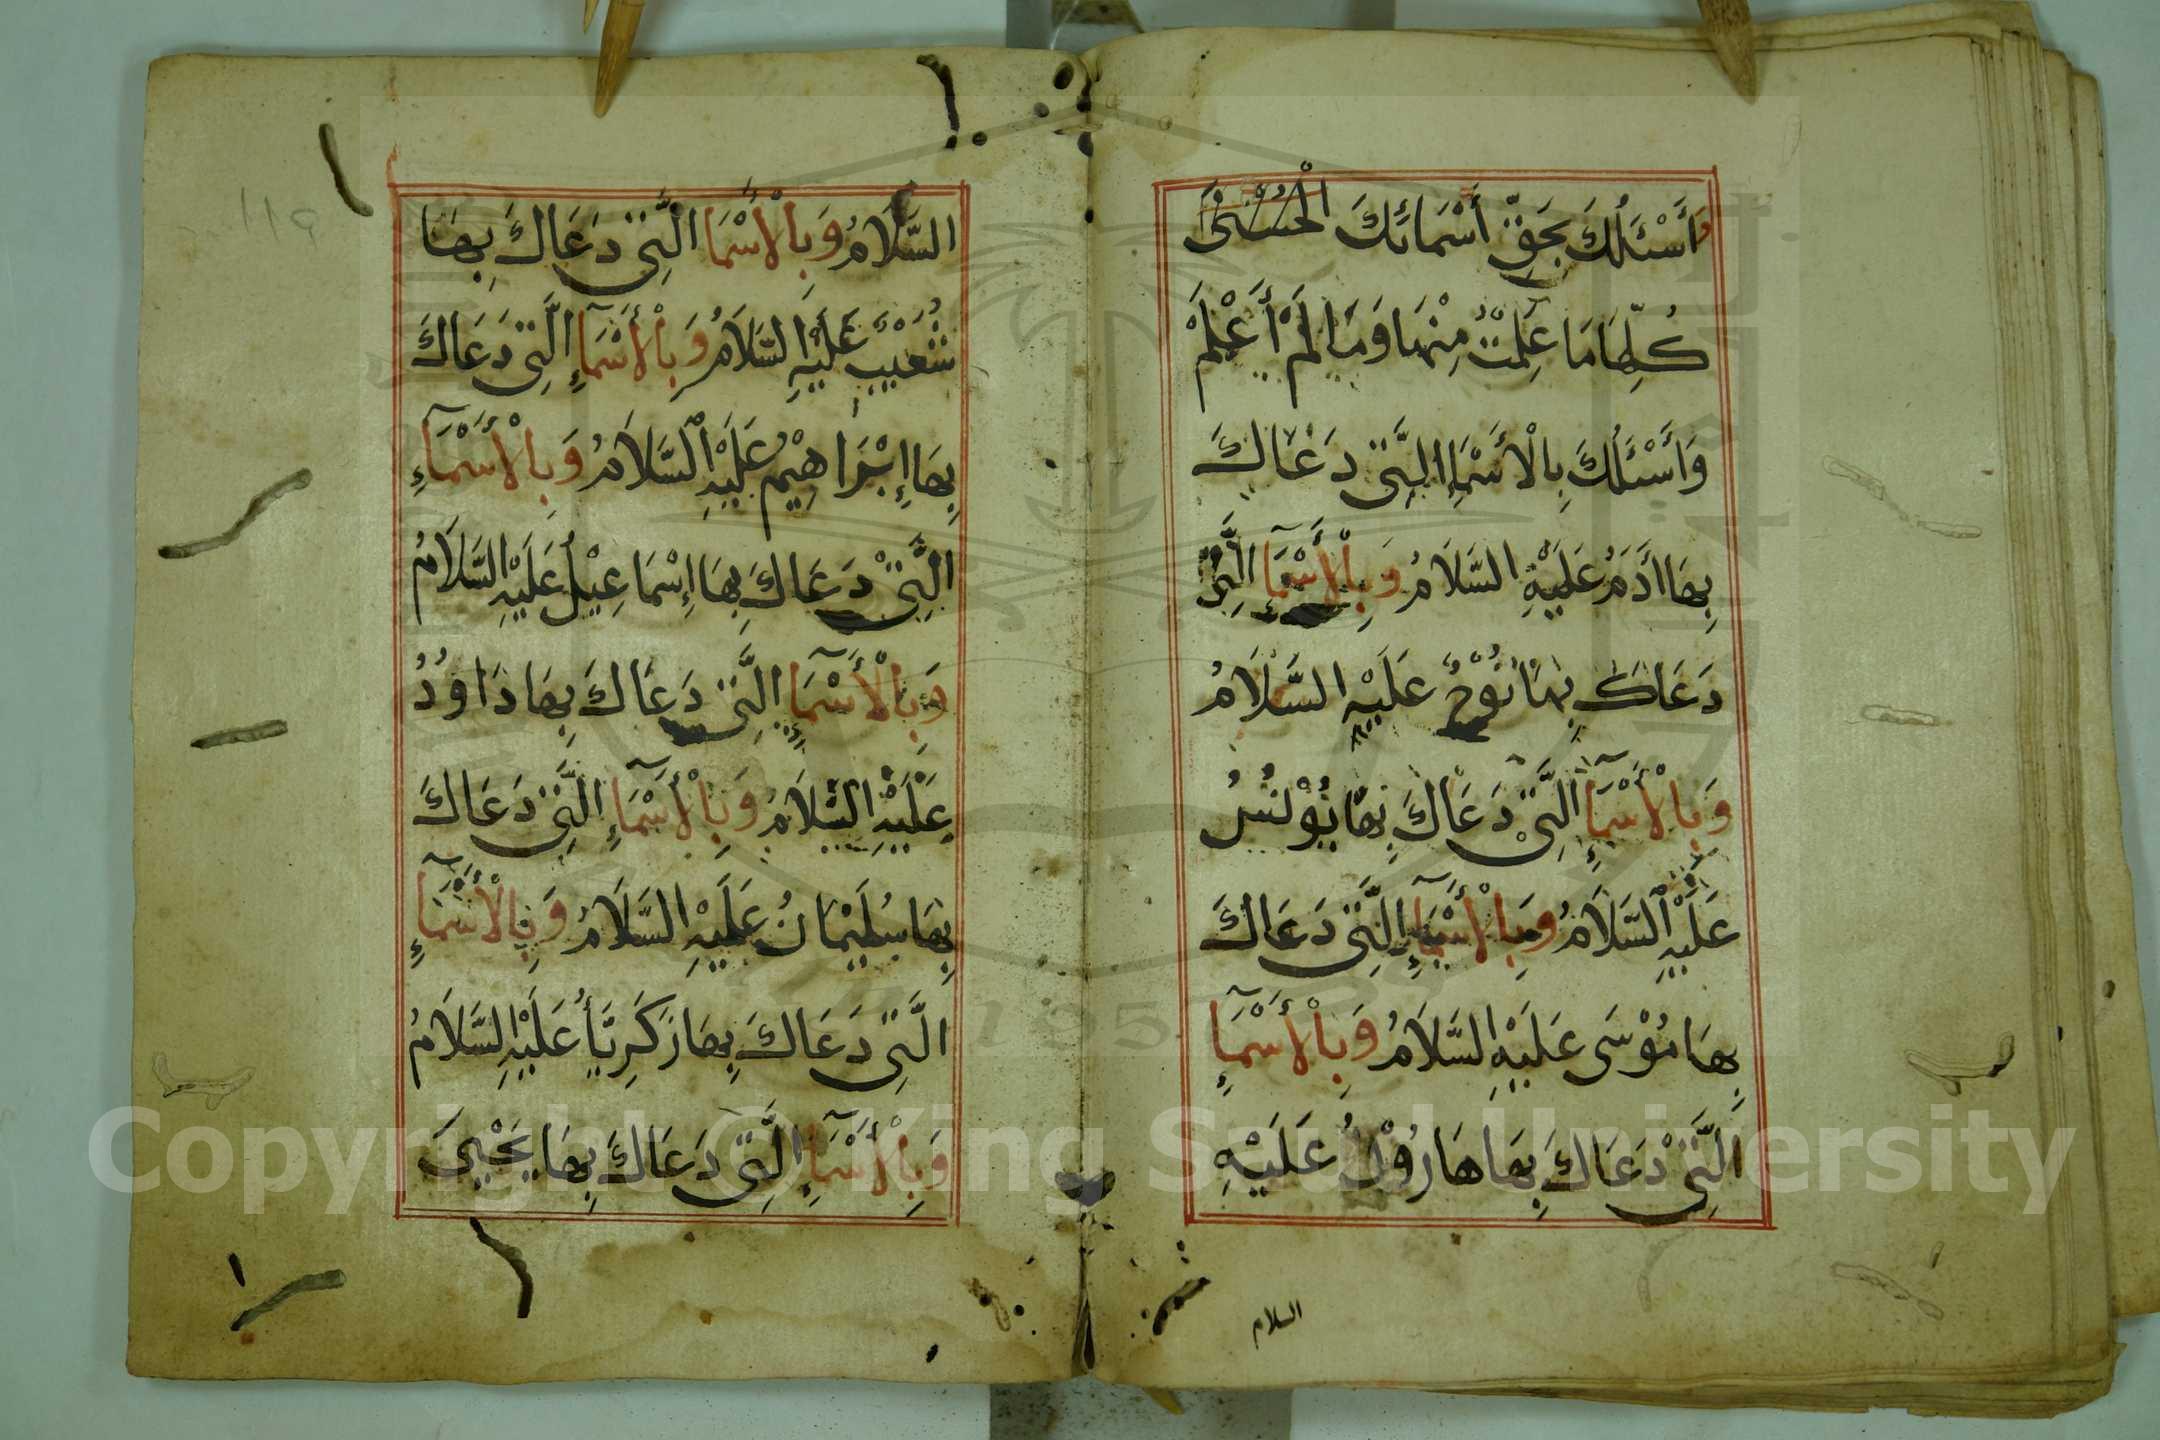 وَأَسْئَلُكَ بِحَقِّ أَسْمَائِكَ الْحُسْنَىٰ
كُلِّهَا مَا عَلِمْتُ مِنْهَا وَمَا لَمْ أَعْلَمْ
وَأَسْئَلُكَ بِالْأَسْمَاءِ الَّتِي دَعَاكَ
بِهَا أدَمُ عَلَيْهِ السَّلَامُ وَبِالْأَسْمَآءِ الَّتِي
دَعَاكَ بِهَا نُوْحٌ عَلَيْهِ السَّلَامُ
وَبِالْأَسْمَآءِ الَّتِيْ دَعَاكَ بِهَا يُوْنُسُ
عَلَيْهِ السَّلَامُ وَبِالْأَسْمَآءِ الَّتِي دَعَاكَ
بِهَا مُوْسَى عَلَيْهِ السَّلَامُ وَبِالْأَسْمَآءِ
الَّتِيْ دَعَاكَ بِهَا هَارُوْنُ عَلَيْهِ
السلام
١١٩
السَّلَامُ وَبِالْأَسْمَا الَّتِي دَعَاكَ بِهَا
شُعَيْبٌ عَلَيْهِ السَّلَامُ وَبِالْأَسْمَآءِ الَّتِي دَعَاكَ
بِهَا إِبْرَاهِيْمُ عَلَيْهِ السَّلَامُ وَبِالْأَسْمَآءِ
الَّتِيْ دَعَاكَ بِهَا إِسْمَاعِيْلُ عَلَيْهِ السَّلَامُ
وَبِالْأَسْمَآءِ الَّتِي دَعَاكَ بِهَا دَاوُدُ
عَلَيْهِ السَّلَامُ وَبِالْأَسْمَآءِ الَّتِي دَعَاكَ
بِهَا سُلَيْمَانُ عَلَيْهِ السَّلَامُ وَبِالْأَسْمَآءِ
الَّتِي دَعَاكَ بِهَا زَكَرِيَّأُ عَلَيْهِ السَّلَامُ
وَبِالْأَسْمَآءِ الَّتِي دَعَاكَ بِهَا يَحْيَىٰ
Copyright © King Saud University